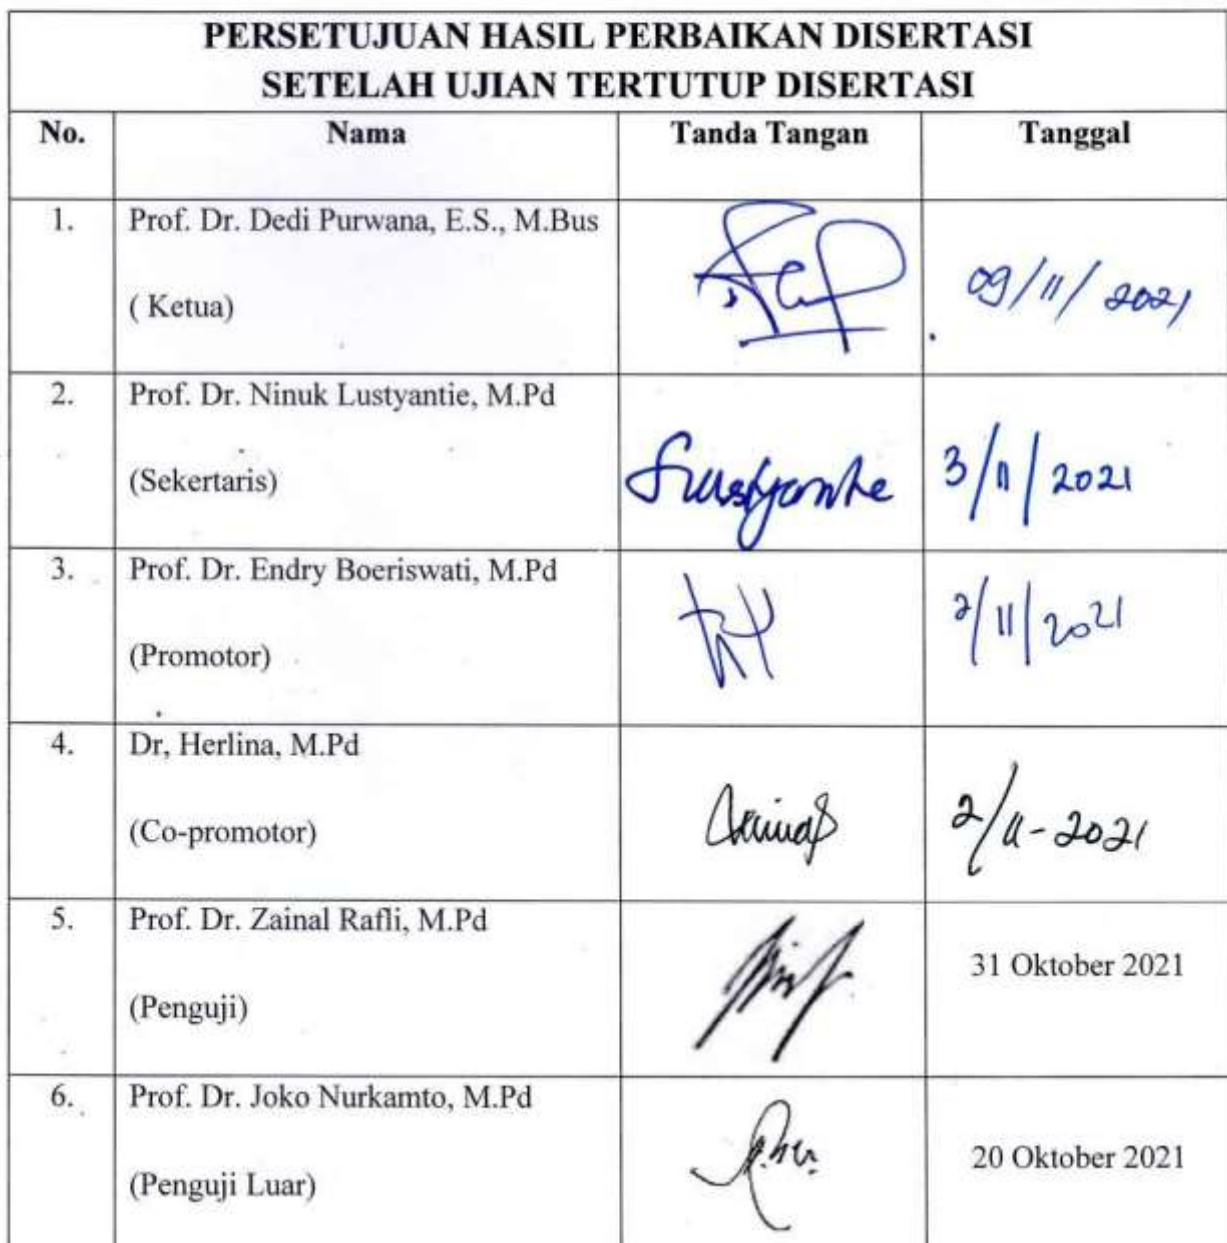 PERSETUJUAN HASIL PERBAIKAN DISERTASI
SETELAH UJIAN TERTUTUP DISERTASI
No. Nama Tanda Tangan Tanggal
1. Prof. Dr. Dedi Purwana, E.S., M.Bus
( Ketua)
09/11/2021
2. Prof. Dr. Ninuk Lustyantie, M.Pd
(Sekertaris)
3/11/2021
3. Prof. Dr. Endry Boeriswati, M.Pd
(Promotor)
2/11/2021
4. Dr, Herlina, M.Pd
(Co-promotor)
2/11-2021
5. Prof. Dr. Zainal Rafli, M.Pd
31 Oktober 2021
(Penguji)
6. Prof. Dr. Joko Nurkamto, M.Pd
20 Oktober 2021
(Penguji Luar)